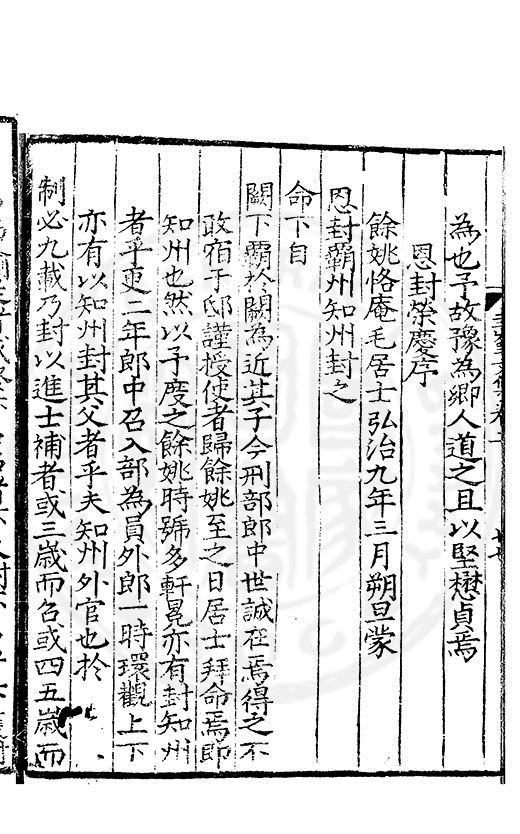 為也予故豫為鄉人道之且以堅懋貞焉
恩封榮慶序
餘姚恪庵毛居士弘治九年三月朔旦蒙
恩封霸州知州封之
命下自
闕下霸於闕為近其子今刑部郎中世誠在焉得之不
敢宿于邸謹授使者歸餘姚至之日居士拜命焉即
知州也然以予度之餘姚時號多軒冕亦有封知州
者乎更二年郎中召入部為員外郎一時環觀上下
亦有以知州封其父者乎夫知州外官也於
制必九載乃封以進士補者或三歲而召或四五歲而